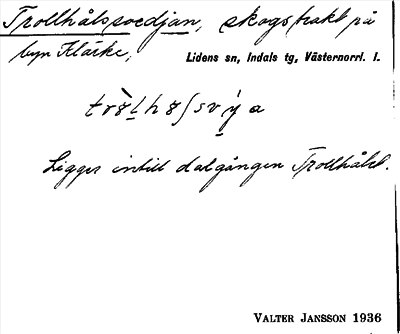 Trollhålssvedjan, skogstrakt på
byn Flärke,
Lidens sn, Indals tg, Västernorrl. l.
Ligger intill dalgången Trollhålet.
VALTER JANSSON 1936